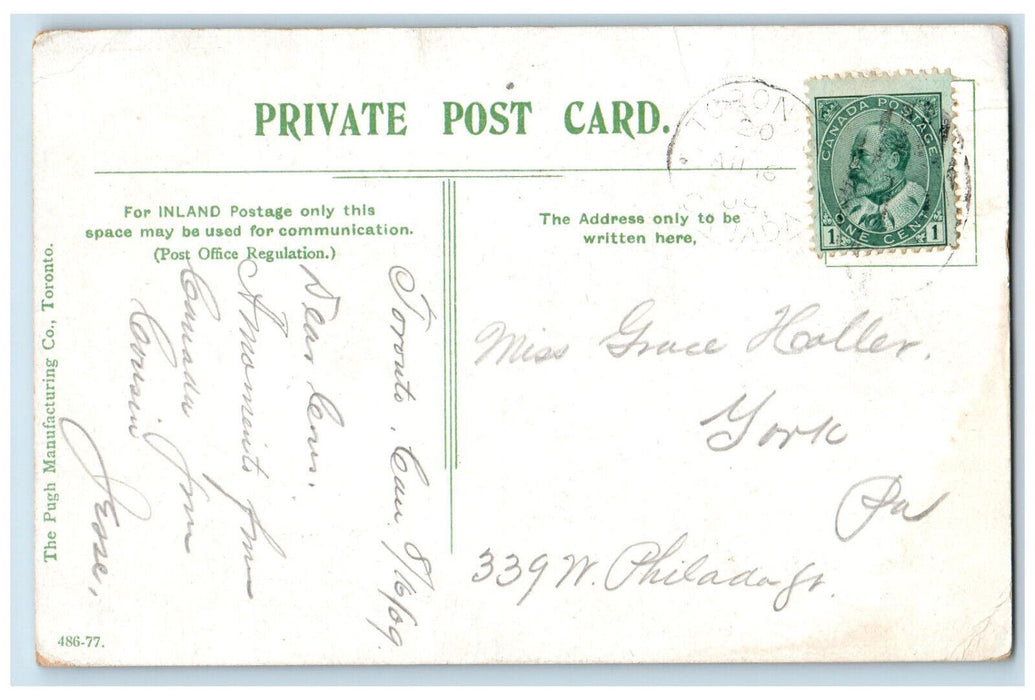 PRIVATE POST CARD.
For INLAND Postage only this
space may be used for communication.
(Post Office Regulation.)
The Address only to be
written here,
The Pugh Manufacturing Co., Toronto.
486-77.
CANADA POSTAGE
1 ONE CENT 1
TORON
20
Toronto, Can. 8/6/09
Dear
A moment's
Canada from
Cousin
Jesse.
Miss Grace Haller.
York
Pa
339 W. Philada St.